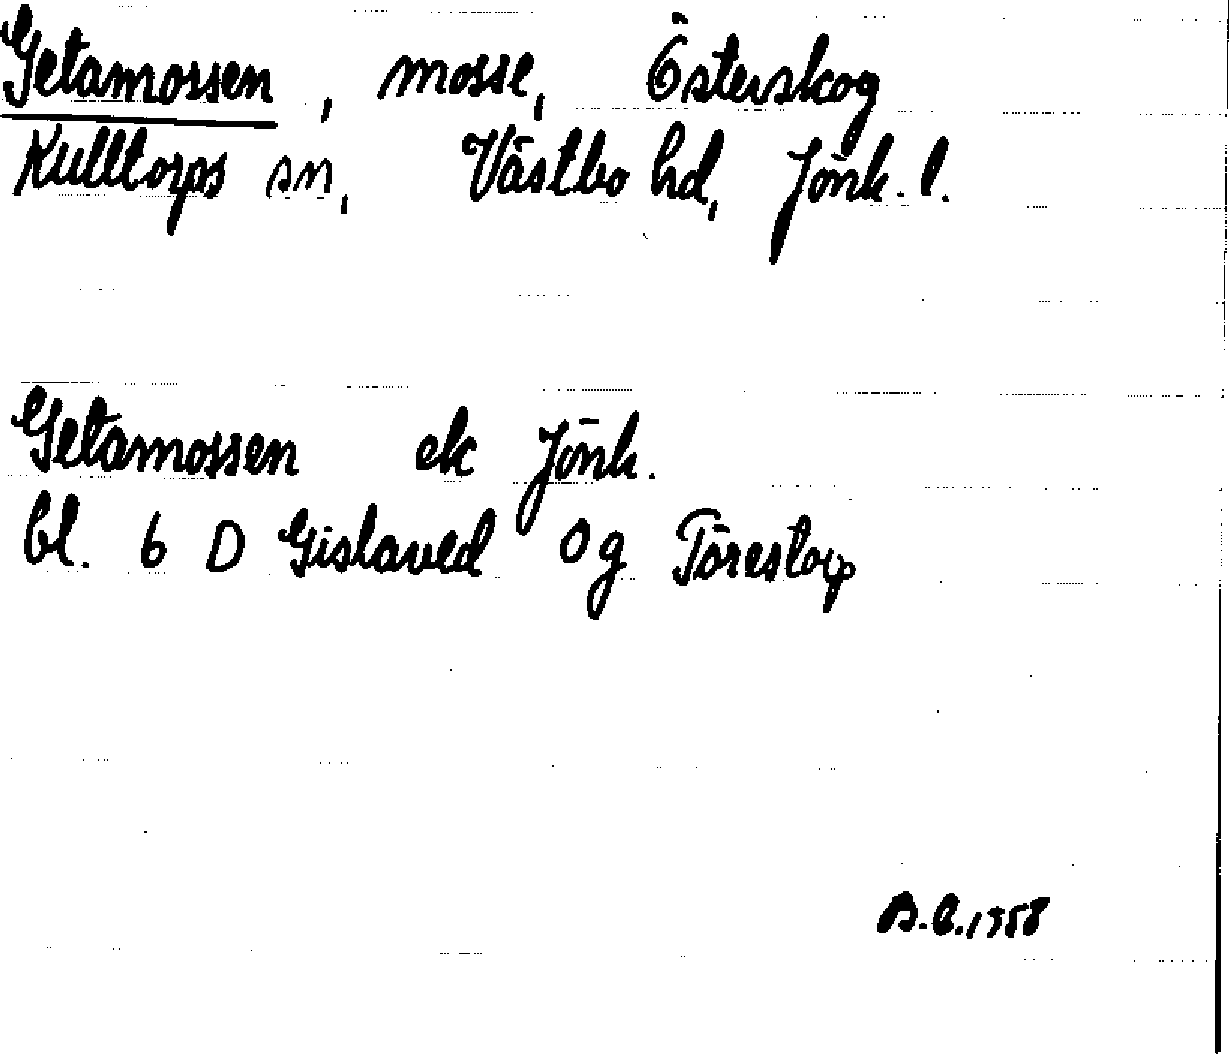 Getamossen, mosse, Österskog
Kulltorps sn, Västbo hd, Jönk. l.
Getamossen ek Jönk.
bl. 6 D Gislaved 0g Törestorp
B.E. 1958